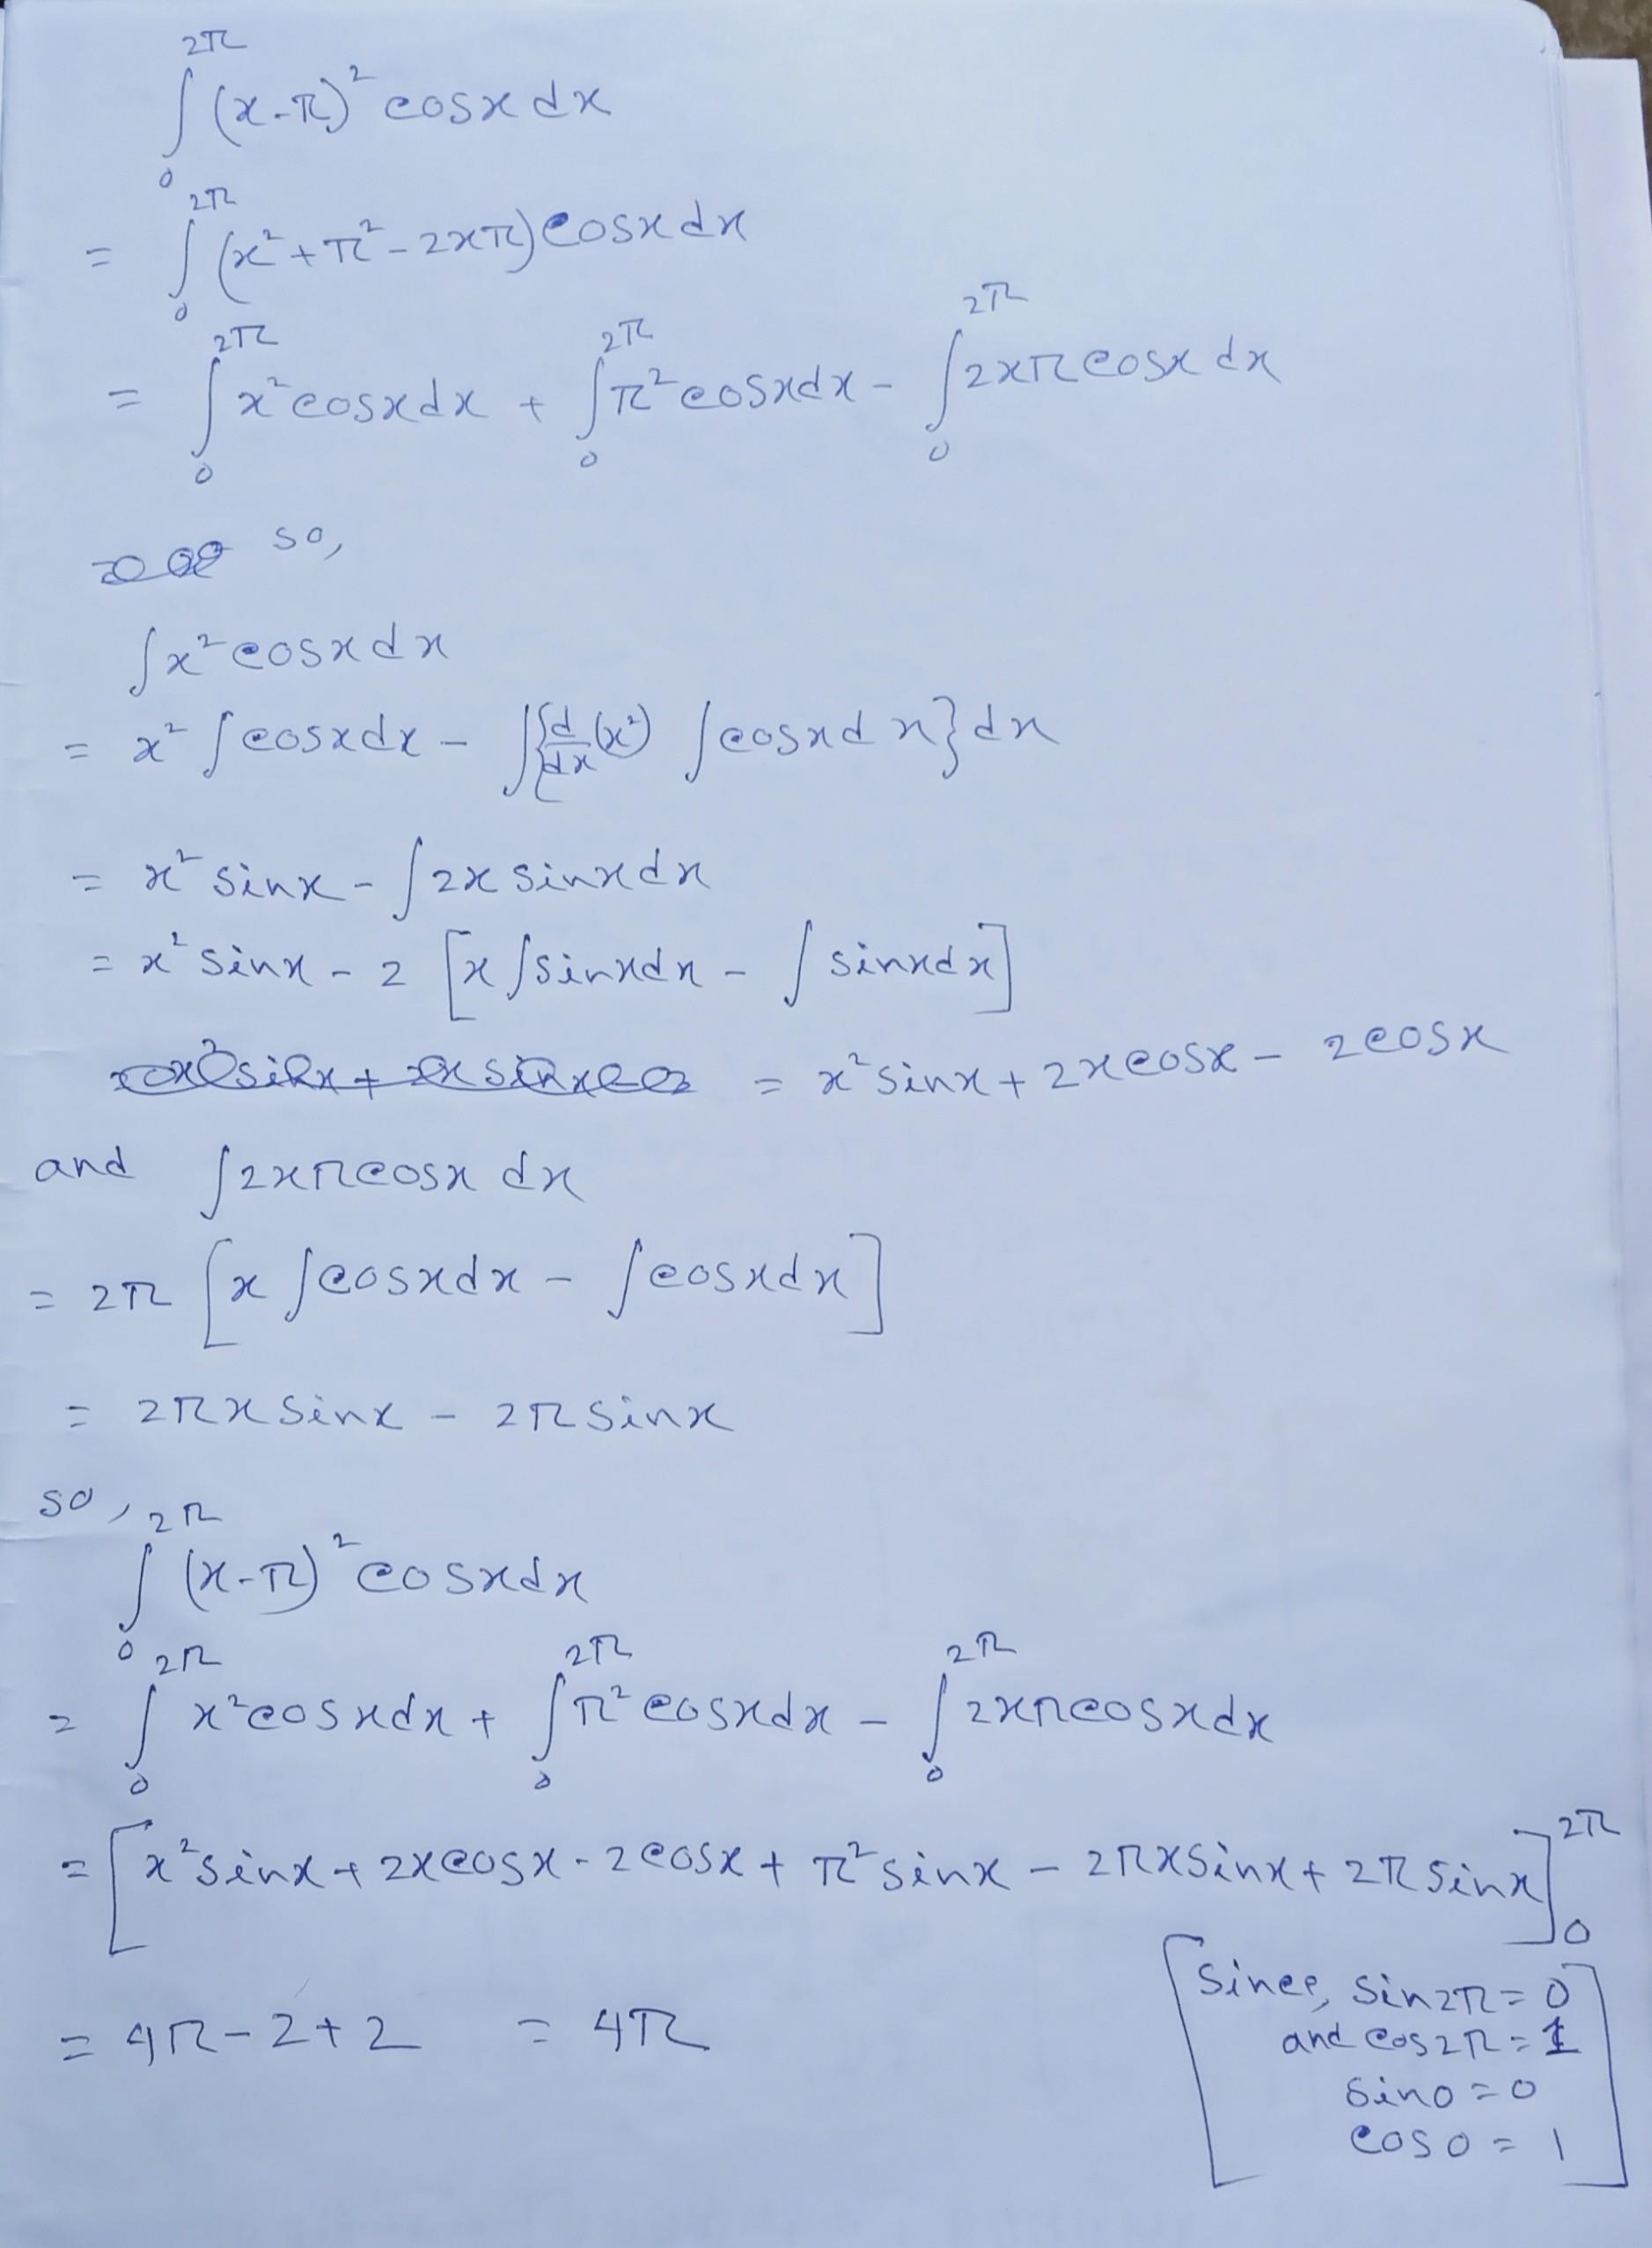 ∫₀^{2π} (x-π)² cosx dx
= ∫₀^{2π} (x²+π²-2xπ) cosx dx
= ∫₀^{2π} x² cosx dx + ∫₀^{2π} π² cosx dx - ∫₀^{2π} 2xπ cosx dx
so,
∫x² cosx dx
= x² ∫cosx dx - ∫{d/dx (x²) ∫cosx dx} dx
= x² sinx - ∫2x sinx dx
= x² sinx - 2 [x ∫sinx dx - ∫sinx dx]
= x² sinx + 2x cosx - 2cosx
and ∫2xπ cosx dx
= 2π [x ∫cosx dx - ∫cosx dx]
= 2πx sinx - 2π sinx
so,
∫₀^{2π} (x-π)² cosx dx
= ∫₀^{2π} x² cosx dx + ∫₀^{2π} π² cosx dx - ∫₀^{2π} 2xπ cosx dx
= [x² sinx + 2x cosx - 2cosx + π² sinx - 2πx sinx + 2π sinx]₀^{2π}
= 4π - 2 + 2 = 4π
[Since, sin2π = 0
and cos2π = 1
sin0 = 0
cos0 = 1]